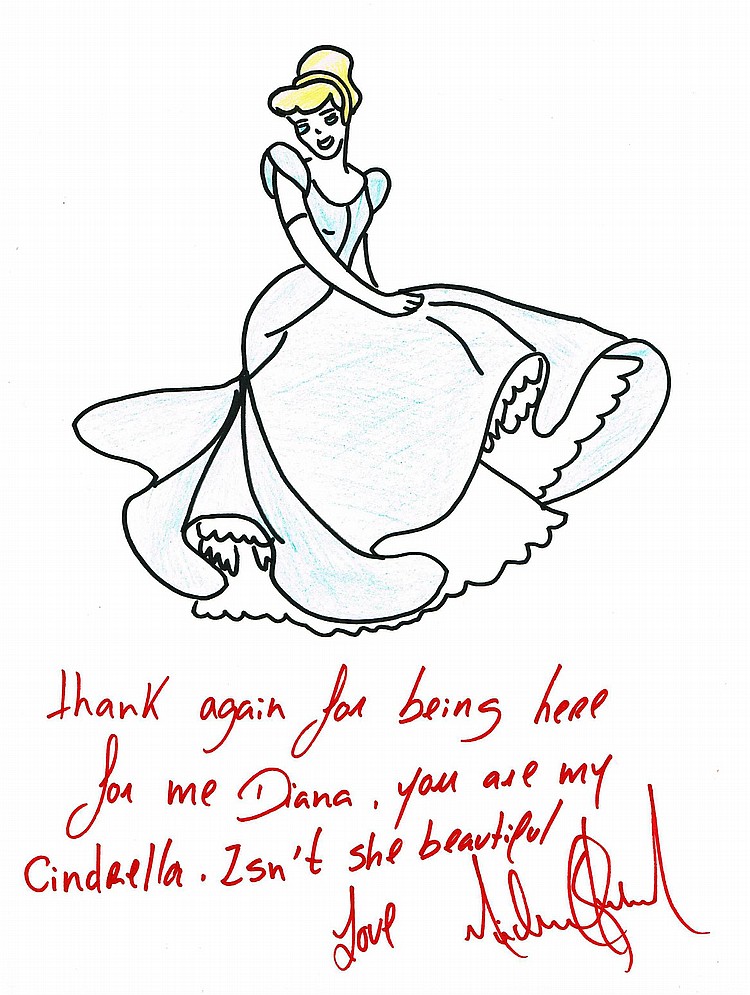 thank again for being here
for me Diana. you are my
Cindrella. Isn't she beautiful
Love